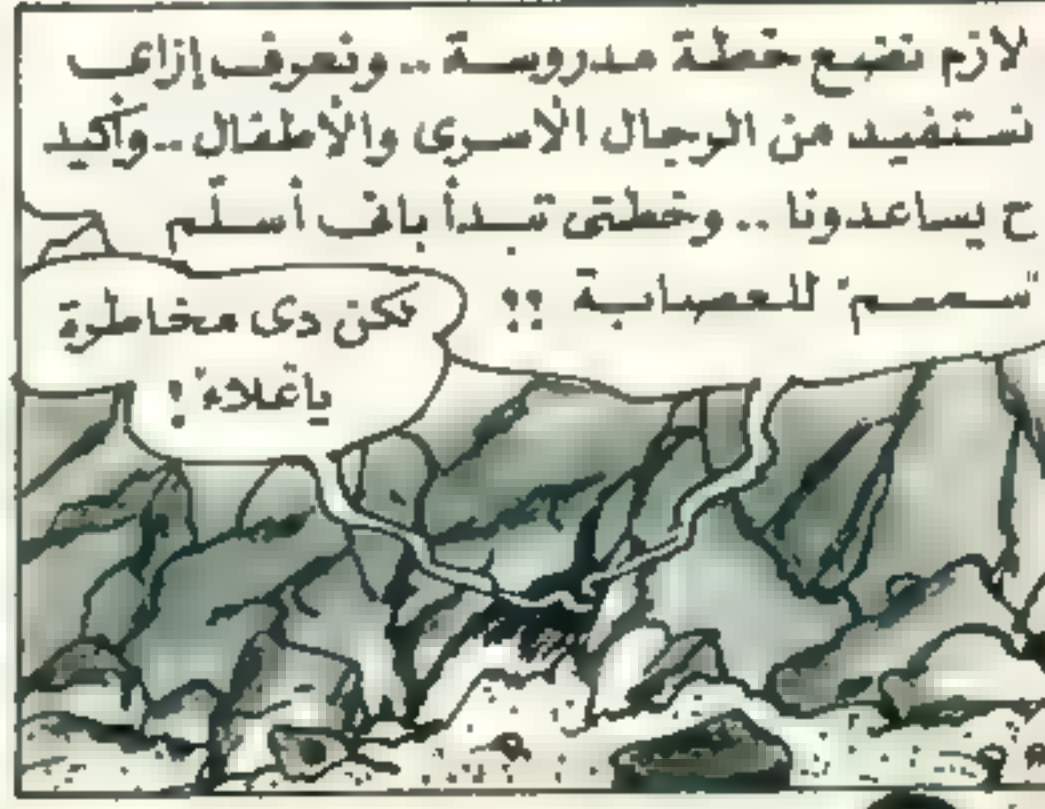 لازم نضع خطة مدروسة .. ونعرف إزاى
نستفيد من الرجال الأسرى والأطفال .. وأكيد
ح يساعدونا .. وخطتى تبدأ بانى أسلّم
"سمسم" للعصابة !!
لكن دى مخاطرة
يا"علاء" !